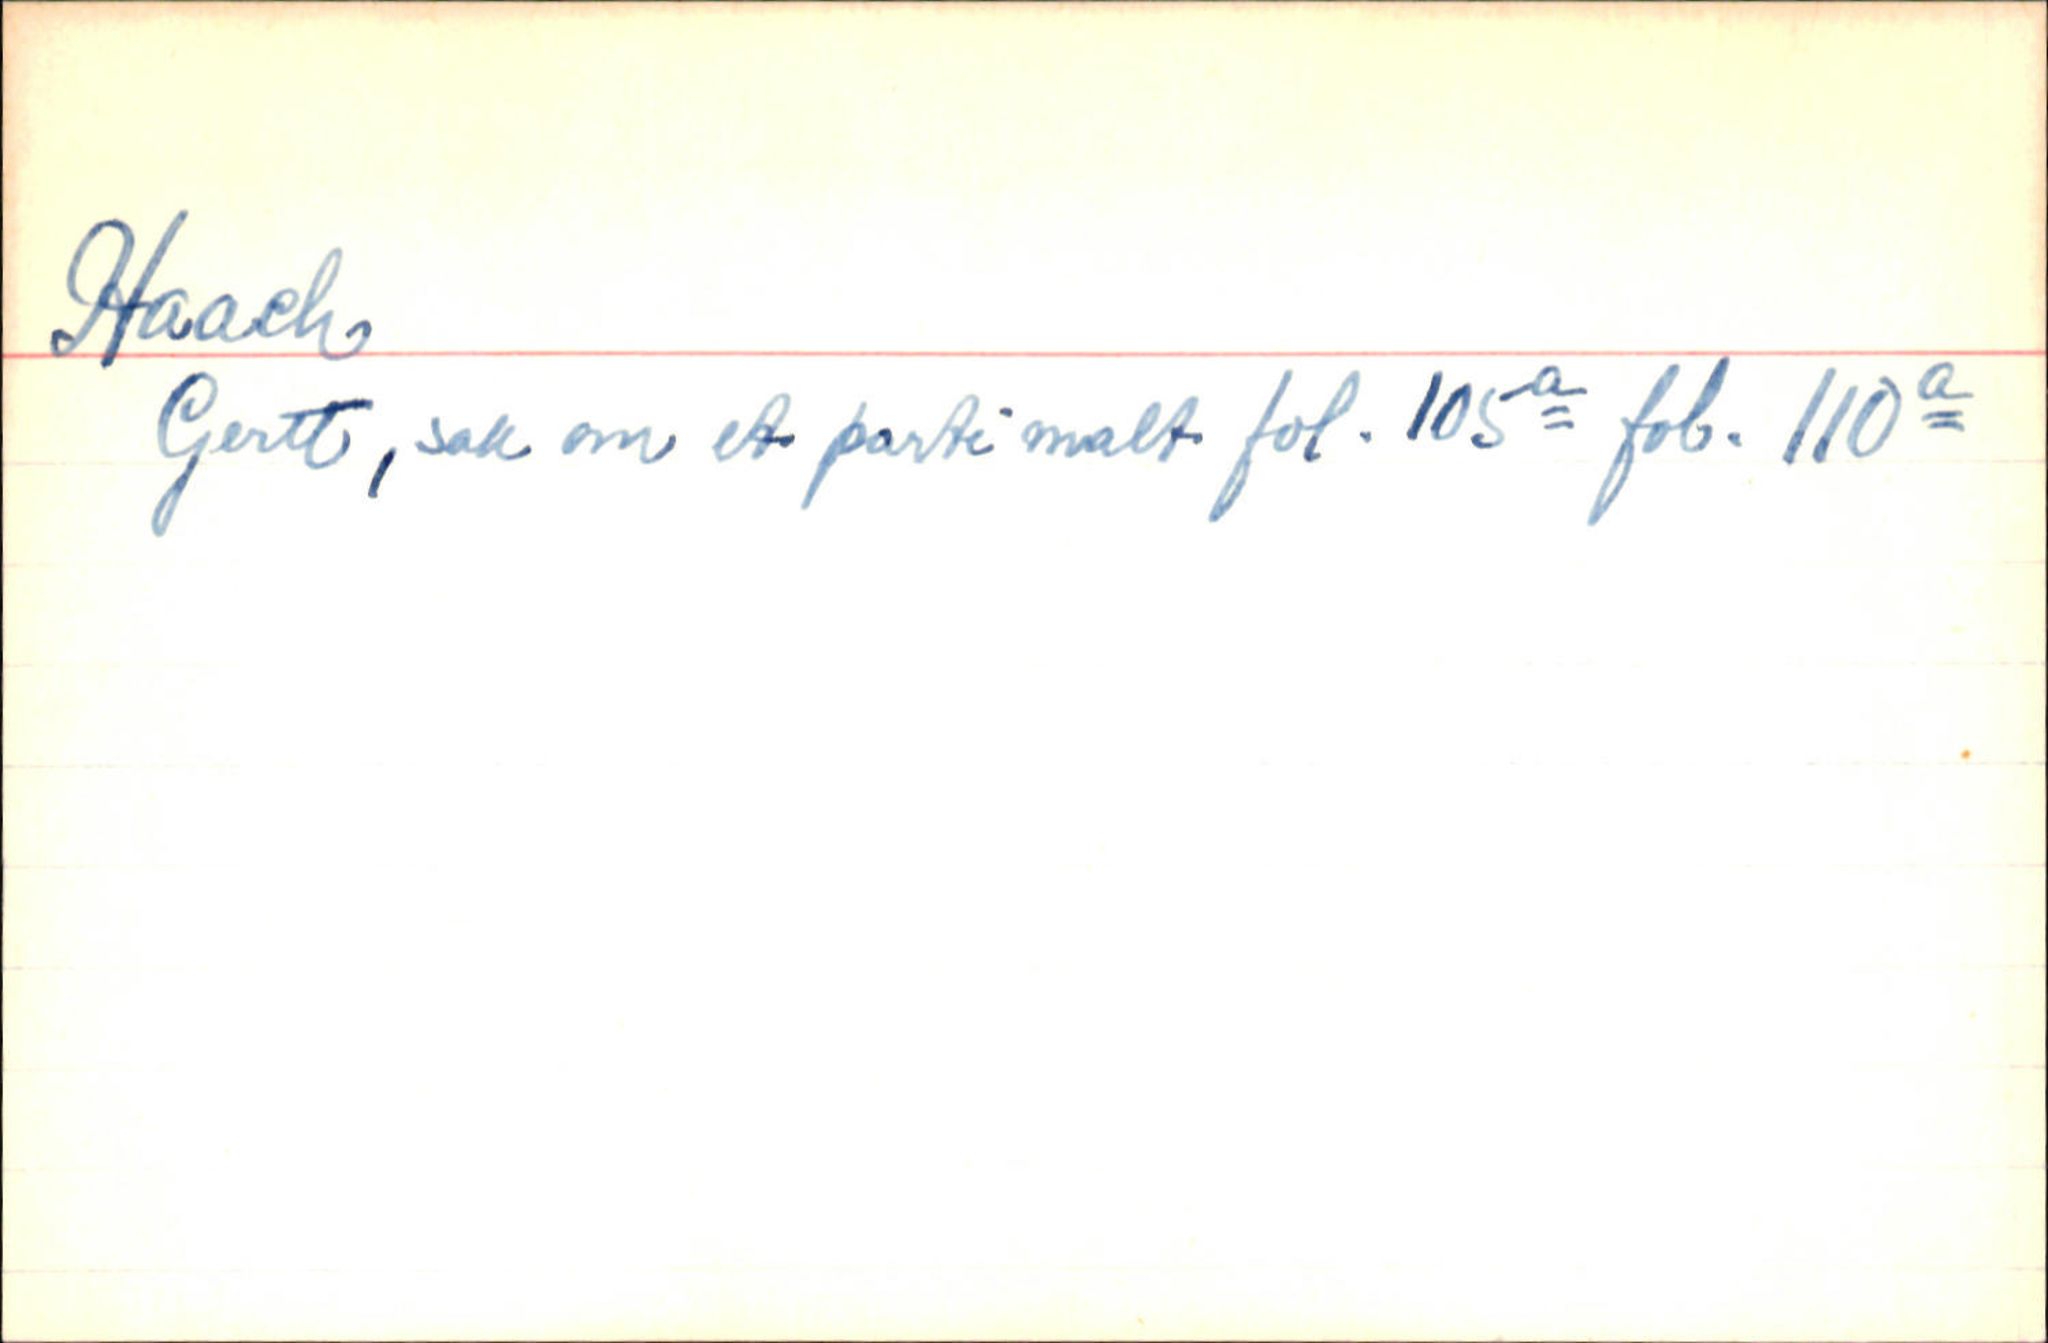 Haach
Gertt, sak om et parti malt fol. 105a fol. 110a